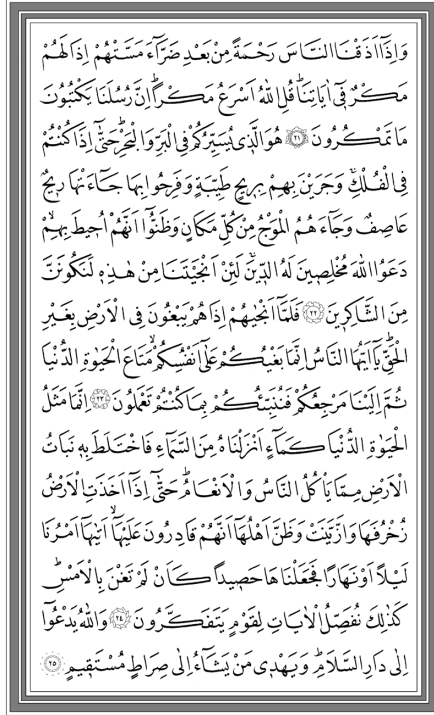 وَاِذَٓا اَذَقْنَا النَّاسَ رَحْمَةً مِنْ بَعْدِ ضَرَّٓاءَ مَسَّتْهُمْ اِذَا لَهُمْ
مَكْرٌ فٓى اٰيَاتِنَاۜ قُلِ اللّٰهُ اَسْرَعُ مَكْراًۜ اِنَّ رُسُلَنَا يَكْتُبُونَ
مَا تَمْكُرُونَ ﴿٢١﴾ هُوَ الَّذٖى يُسَيِّرُكُمْ فِى الْبَرِّ وَالْبَحْرِۜ حَتّٰٓى اِذَا كُنْتُمْ
فِى الْفُلْكِۚ وَجَرَيْنَ بِهِمْ بِرٖيحٍ طَيِّبَةٍ وَفَرِحُوا بِهَا جَٓاءَتْهَا رٖيحٌ
عَاصِفٌ وَجَٓاءَهُمُ الْمَوْجُ مِنْ كُلِّ مَكَانٍ وَظَنُّٓوا اَنَّهُمْ اُحٖيطَ بِهِمْۙ
دَعَوُا اللّٰهَ مُخْلِصٖينَ لَهُ الدّٖينَۚ لَئِنْ اَنْجَيْتَنَا مِنْ هٰذِهٖ لَنَكُونَنَّ
مِنَ الشَّاكِرٖينَ ﴿٢٢﴾ فَلَمَّٓا اَنْجٰيهُمْ اِذَا هُمْ يَبْغُونَ فِى الْاَرْضِ بِغَيْرِ
الْحَقِّۜ يَٓا اَيُّهَا النَّاسُ اِنَّمَا بَغْيُكُمْ عَلٰٓى اَنْفُسِكُمْۙ مَتَاعَ الْحَيٰوةِ الدُّنْيَاۘ
ثُمَّ اِلَيْنَا مَرْجِعُكُمْ فَنُنَبِّئُكُمْ بِمَا كُنْتُمْ تَعْمَلُونَ ﴿٢٣﴾ اِنَّمَا مَثَلُ
الْحَيٰوةِ الدُّنْيَا كَمَٓاءٍ اَنْزَلْنَاهُ مِنَ السَّمَٓاءِ فَاخْتَلَطَ بِهٖ نَبَاتُ
الْاَرْضِ مِمَّا يَاْكُلُ النَّاسُ وَالْاَنْعَامُۜ حَتّٰٓى اِذَٓا اَخَذَتِ الْاَرْضُ
زُخْرُفَهَا وَازَّيَّنَتْ وَظَنَّ اَهْلُهَٓا اَنَّهُمْ قَادِرُونَ عَلَيْهَٓاۙ اَتٰيهَٓا اَمْرُنَا
لَيْلاً اَوْ نَهَاراً فَجَعَلْنَاهَا حَصٖيداً كَاَنْ لَمْ تَغْنَ بِالْاَمْسِۜ
كَذٰلِكَ نُفَصِّلُ الْاٰيَاتِ لِقَوْمٍ يَتَفَكَّرُونَ ﴿٢٤﴾ وَاللّٰهُ يَدْعُٓوا
اِلٰى دَارِ السَّلَامِۜ وَيَهْدٖى مَنْ يَشَٓاءُ اِلٰى صِرَاطٍ مُسْتَقٖيمٍ ﴿٢٥﴾